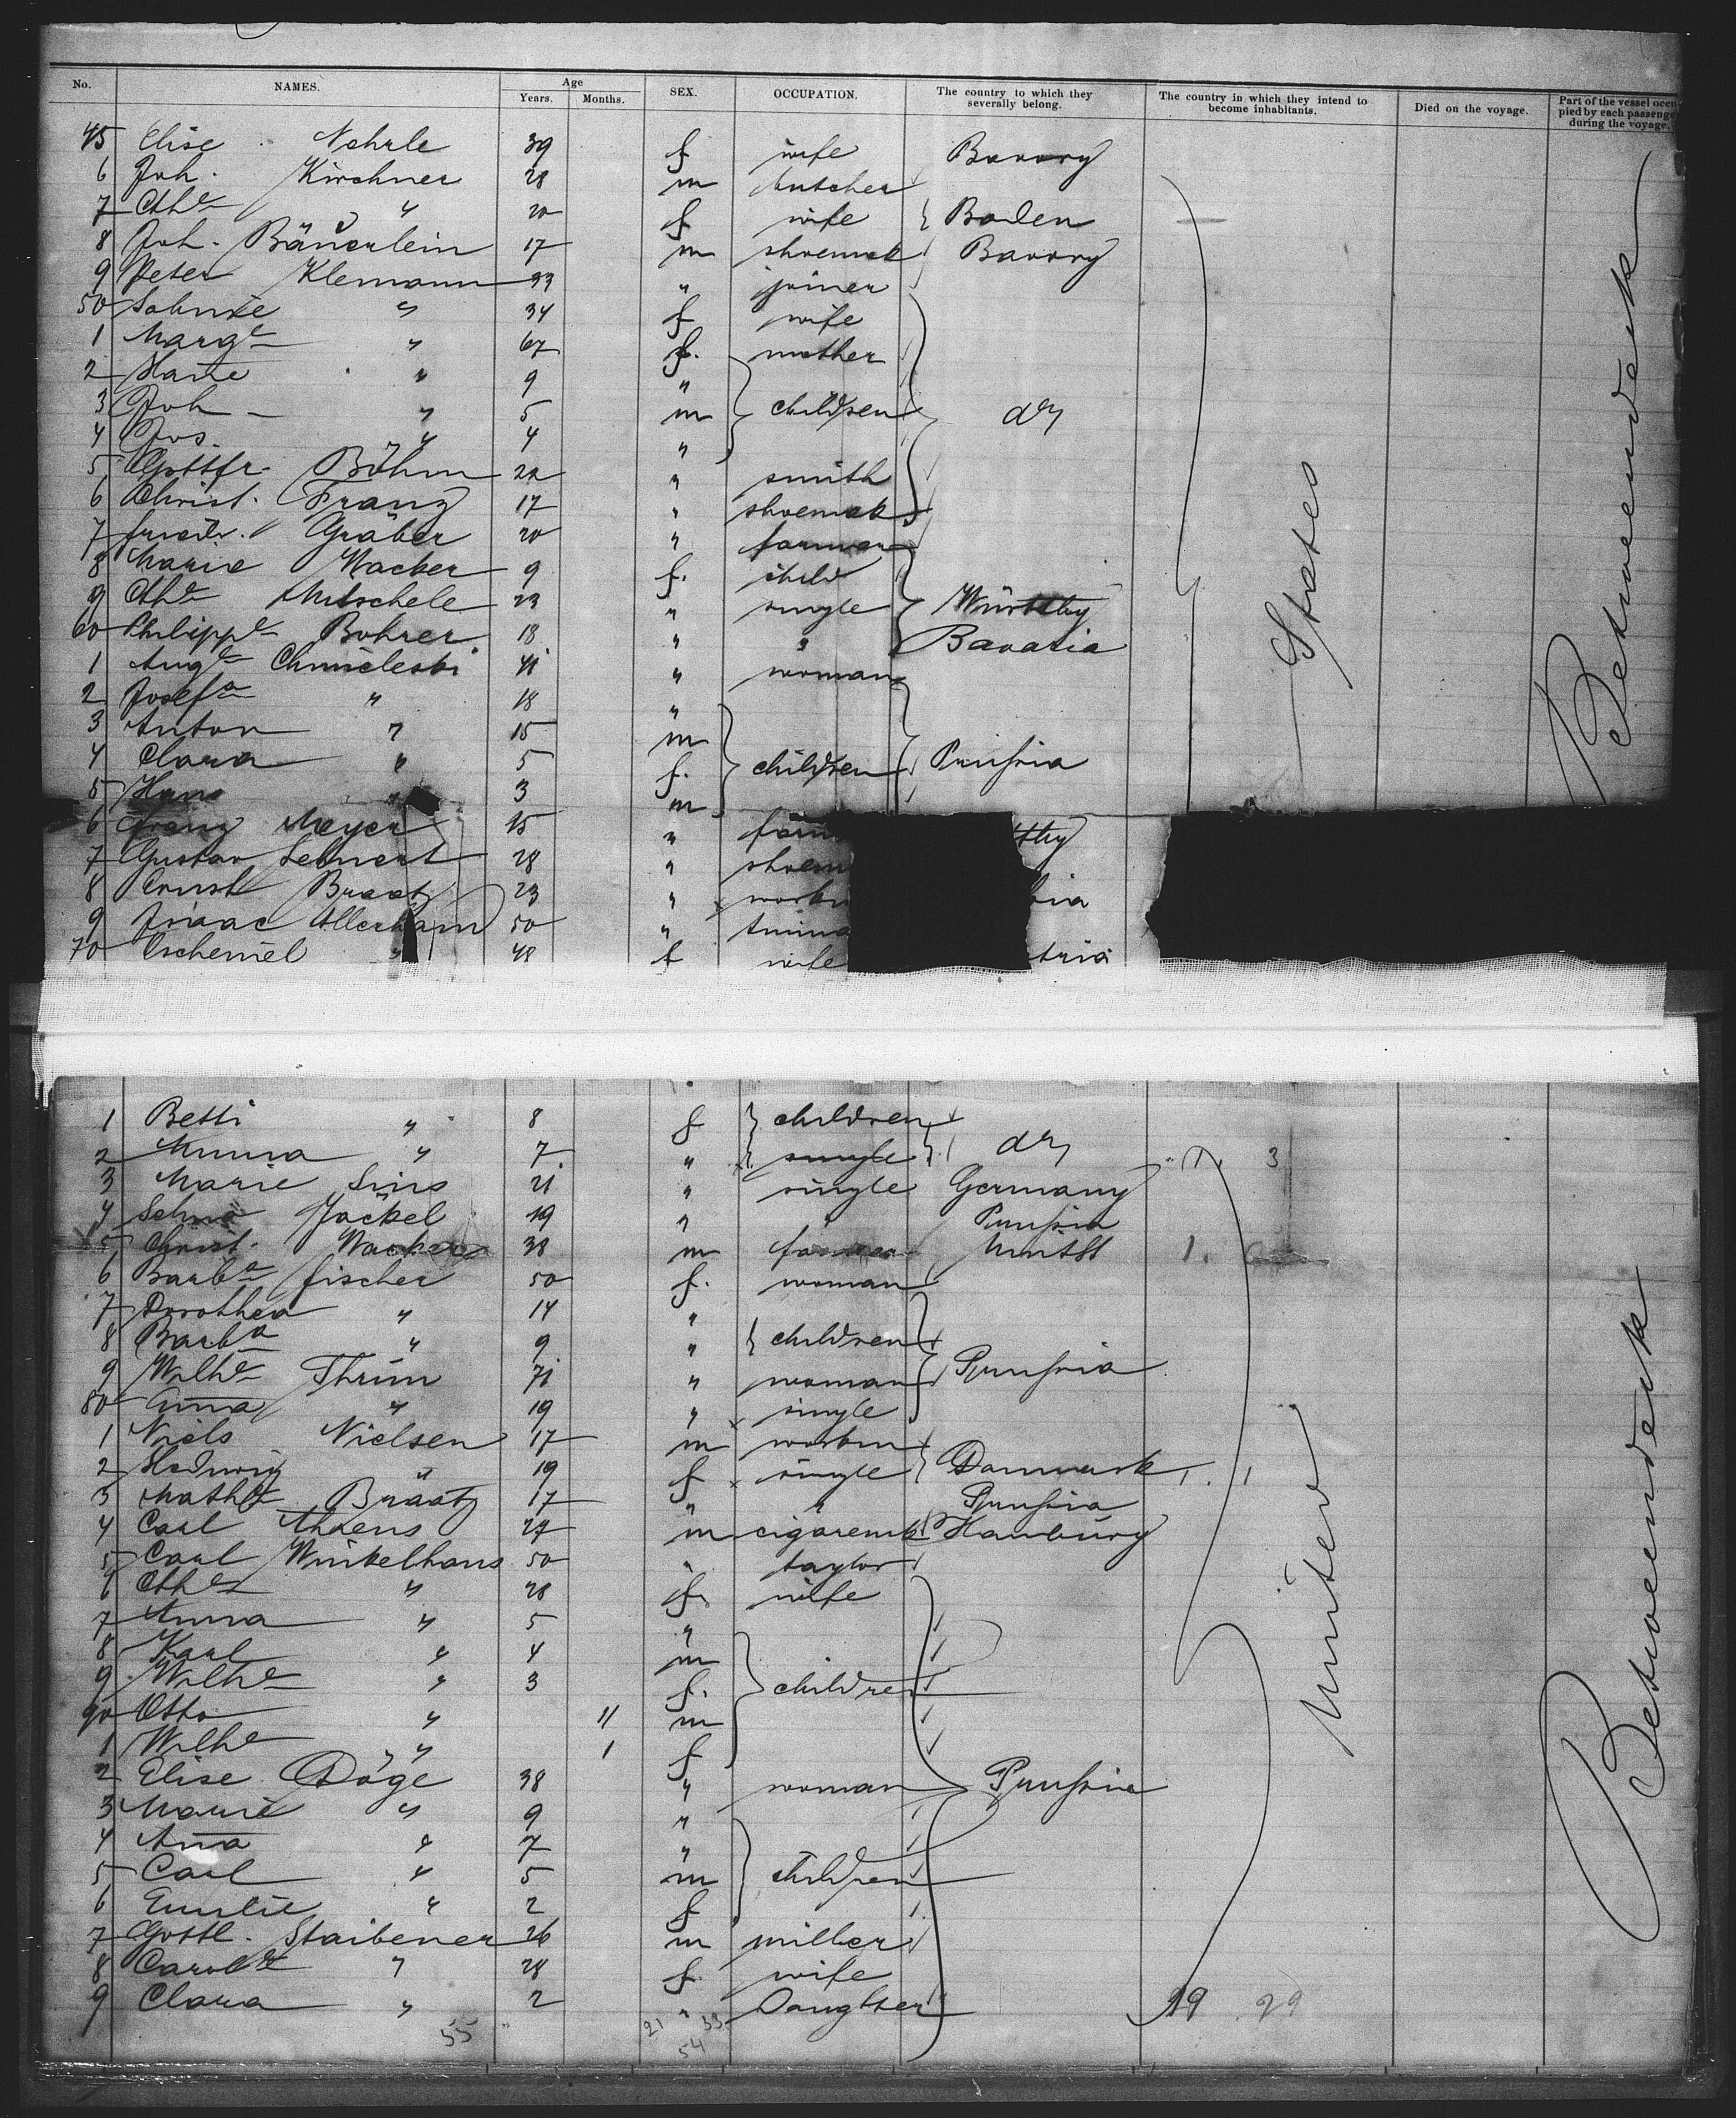 No. NAMES. Age Years. Months. SEX. OCCUPATION. The country to which they severally belong. The country in which they intend to become inhabitants. Died on the voyage. Part of the vessel occupied by each passenger during the voyage.
45 Elise Nehrle 39 f wife Bavary
6 Joh. Kirchner 28 m butcher
7 Cthe " 20 f wife Baden
8 Joh. Bäuerlein 17 m shoemak Bavary
9 Peter Klemann 33 " joiner
50 " 34 f wife
1 Marge " 67 f. mother
2 " 9 "
3 Joh " 5 m children do
4 Jos. " 4 "
5 Gottfr. Böhm 22 " smith
6 Christ. Franz 17 " shoemak
7 Gräber 20 " farmer
8 Marie Wacker 9 f. child
9 Cthe Mutschele 23 " single Württbg
60 Philippe Bohrer 18 " " Bavaria
1 Auge Chmieleski 41 " woman
2 Josefa " 18 "
3 Anton " 15 m
4 Clara " 5 f. children Prussia
5 Hans " 3 m
6 Franz Meyer 15 " farm
7 Gustav Lehnert 28 " shoem
8 Ernst Braatz 23 " workm
9 Isaac 50 "
70 " 48 f wife tria
States
Betweendenk
1 Betti " 8 f children
2 " 7 " single do 3
3 Marie Sins 21 " single Germany
4 Selma Jäckel 19 " " Prussia
5 Christ. Wacker 38 m farmer 1.
6 Barba Fischer 50 f. woman
7 Dorothea " 14 "
8 Barba " 9 " children
9 Wilhe Thrun 71 " woman Prussia
80 Anna " 19 " single
1 Niels Nielsen 17 m workm
2 Hedwig " 19 f single Danmark
3 Mathe Braatz 17 " " Prussia
4 Carl Ahrens 27 m cigaremk Hamburg
5 Carl Winkelhaus 50 " taylor
6 Cthe " 28 f. wife
7 Anna " 5 "
8 Karl " 4 m
9 Wilhe " 3 f. children
90 Otto " 11 m
1 Wilhe " 1 f
2 Elise Döge 38 " woman Prussia
3 Marie " 9 "
4 Anna " 7 "
5 Carl " 5 m children
6 Emilie " 2 f
7 Gottl. Staibener 26 m miller
8 Carole " 28 f. wife
9 Clara " 2 " Daughter 19 29
55 21 33 54
United
Betweendenk